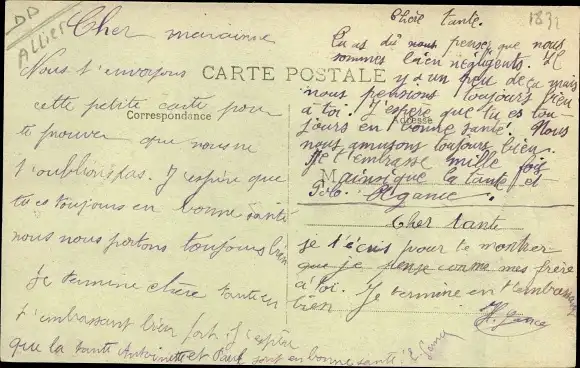 DD
ALLIER
1832
CARTE POSTALE
Correspondance
Adresse
Cher marainne
Nous t'envoyons
cette petite carte pour
te prouver que nous ne
t'oublions pas. J'espère que
tu es toujours en bonne santé
nous nous portons toujours bien
Je termine chère tante en
t'embrassant bien fort. J'espère
que la tante Antoinette et Paul sont en bonne santé.
Chère tante.
Tu as dû nous penser que nous
sommes bien négligents. Il
y a un peu de ça mais
nous pensions toujours bien
à toi. J'espère que tu es tou-
jours en bonne santé. Nous
nous amusons toujours bien.
Je t'embrasse mille fois
M ainsi que la tante et
Cher tante
je t'écris pour te montrer
que je pense comme mes frère
à toi. Je termine en t'embrassant
bien